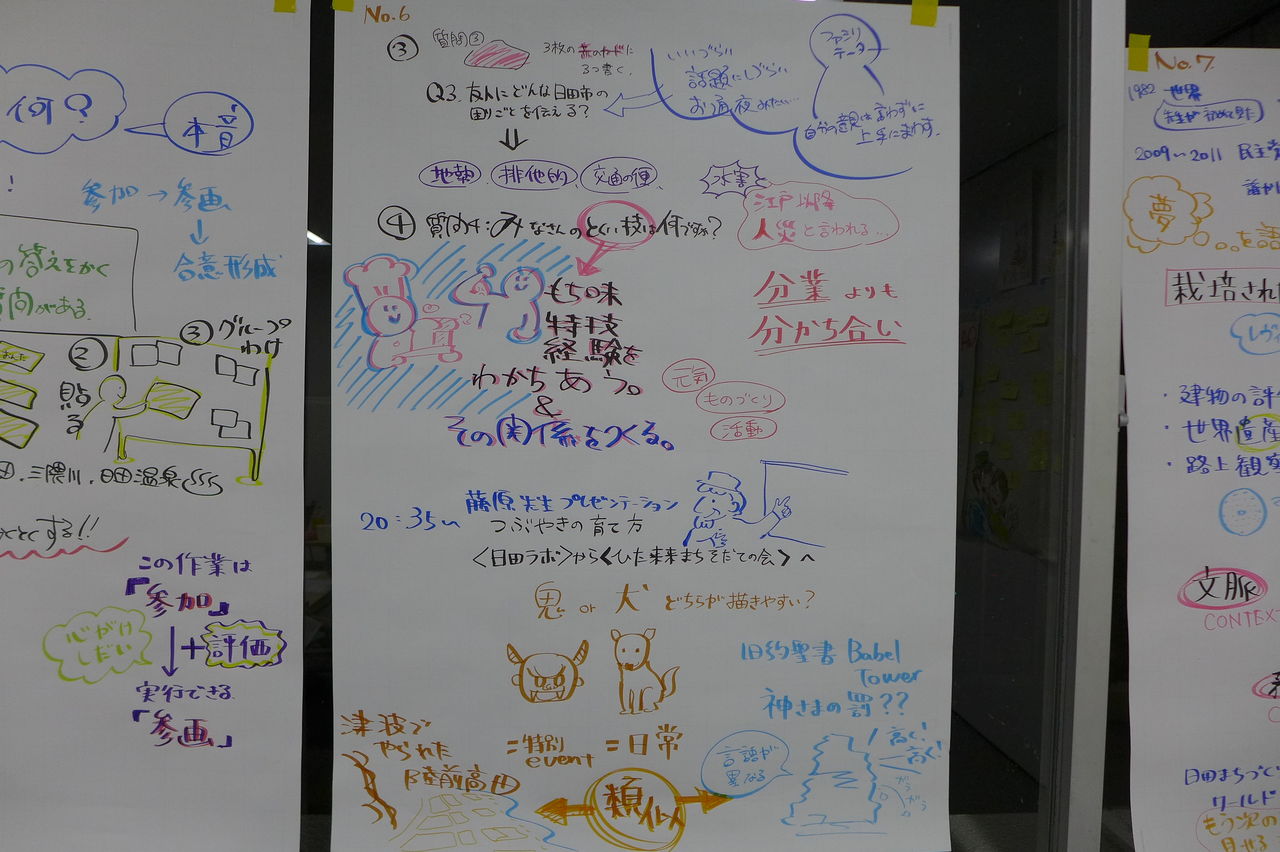 何?
本音
参加→参画
↓
合意形成
の答えをかく
がある。
②
貼る
③グループ
わけ
三隈川、日田温泉
とくとする!!
この作業は
「参加」
心がけ
しだい
↓+評価
実行できる
「参画」
No.6
③
質問③
3枚の赤のカードに
3つ書く。
Q3. 友人にどんな日田市の
困りごとを伝える?
いいづらい
話題にしづらい
お通夜みたい…
ファシリ
テーター
自分の意見は言わずに
上手にまわす。
地熱
排他的
交通の便
水害も
江戸以降
人災と言われる…
④ 質問4:みなさんのとくい技は何ですか?
もち味
特技
経験を
わかちあう。
&
その関係をつくる。
分業よりも
分かち合い
元気
ものづくり
活動
20:35〜
藤原先生プレゼンテーション
つぶやきの育て方
<日田ラボ>から<ひた未来まちそだての会>へ
鬼 or 犬 どちらが描きやすい?
=特別
event
=日常
旧約聖書 Babel
Tower
神さまの罰??
津波で
やられた
陸前高田
類似
言語が
異なる
高く!
高く!
No.7
1982 世界
2009〜2011 民主党
夢
を語
栽培され
・建物の評価
・世界遺産
・路上観察
文脈
CONTEX
日田まちづく
ワールド
もう次の